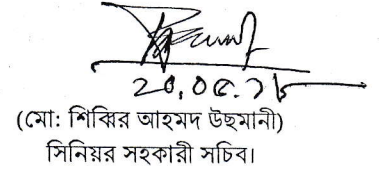 ২০.০৫.১৮
(মো: শিব্বির আহমদ উছমানী)
সিনিয়র সহকারী সচিব।